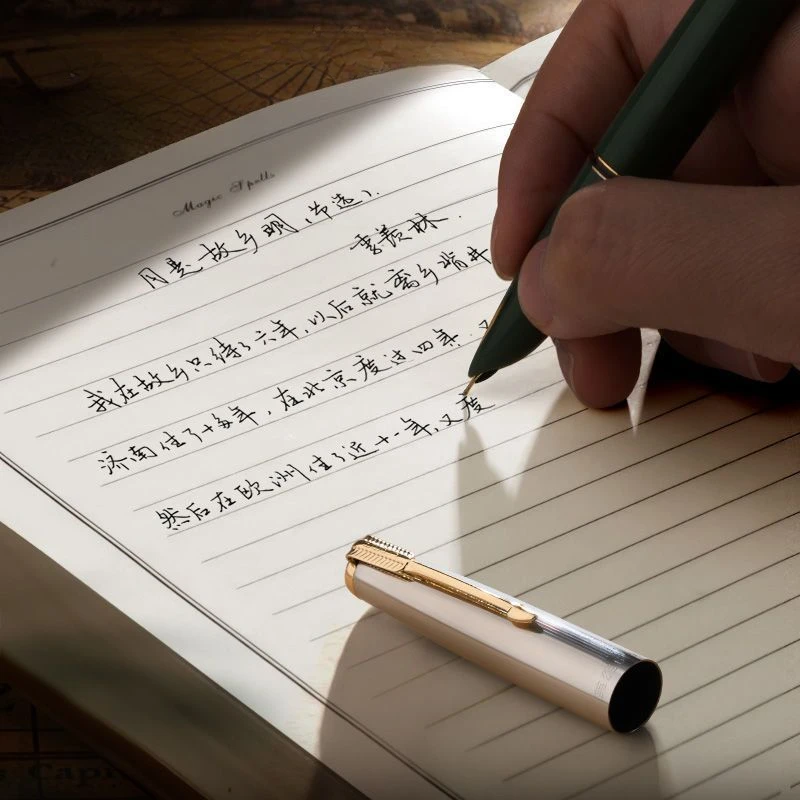 Magic Spells
月是故乡明(节选).
季羡林.
我在故乡只待了六年,以后就离乡背井
济南住了十多年,在北京度过四年.又
然后在欧洲住了近十一年,又度